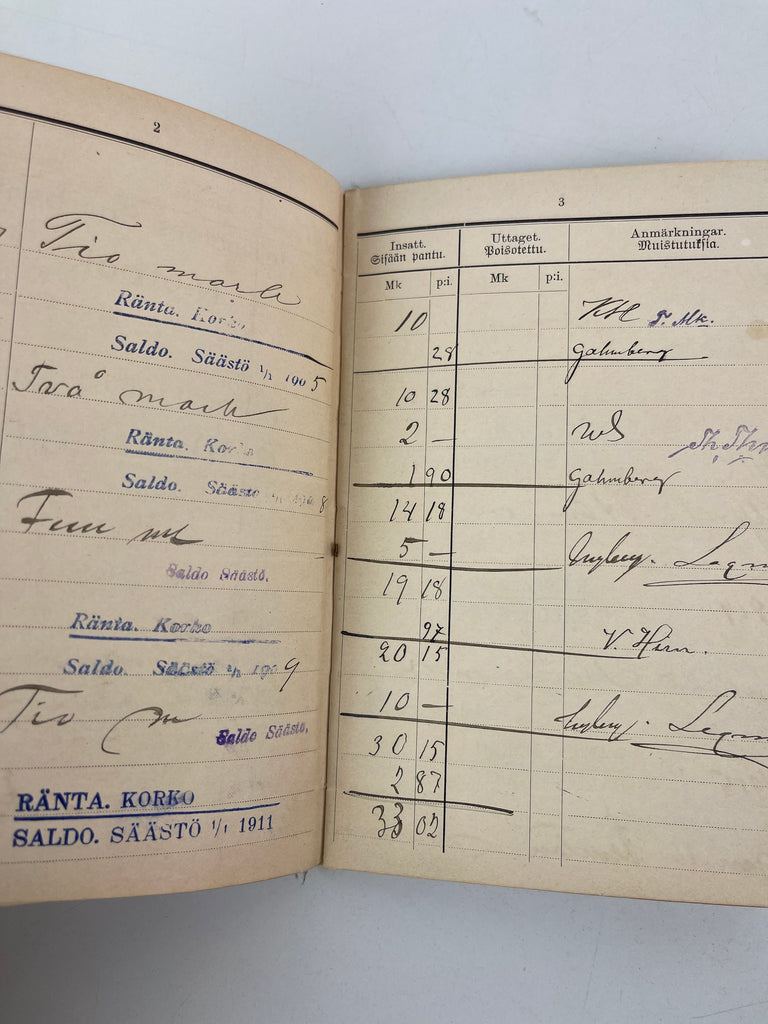 2
Tio mark
Ränta. Korko
Saldo. Säästö 1/1 1905
Två mark
Ränta. Korko
Saldo. Säästö 8
Fem mk
Saldo Säästö.
Ränta. Korko
Saldo. Säästö 1/1 1909
Tio m
Saldo Säästö.
RÄNTA. KORKO
SALDO. SÄÄSTÖ 1/1 1911
3
Insatt. Uttaget. Anmärkningar.
Sisään pantu. Poisotettu. Muistutuksia.
Mk p:i. Mk p:i.
10
28 Gahmberg
10 28
2 —
1 90 Gahmberg
14 18
5 —
19 18
97 V. Hirn.
20 15
10 —
30 15
2 87
33 02